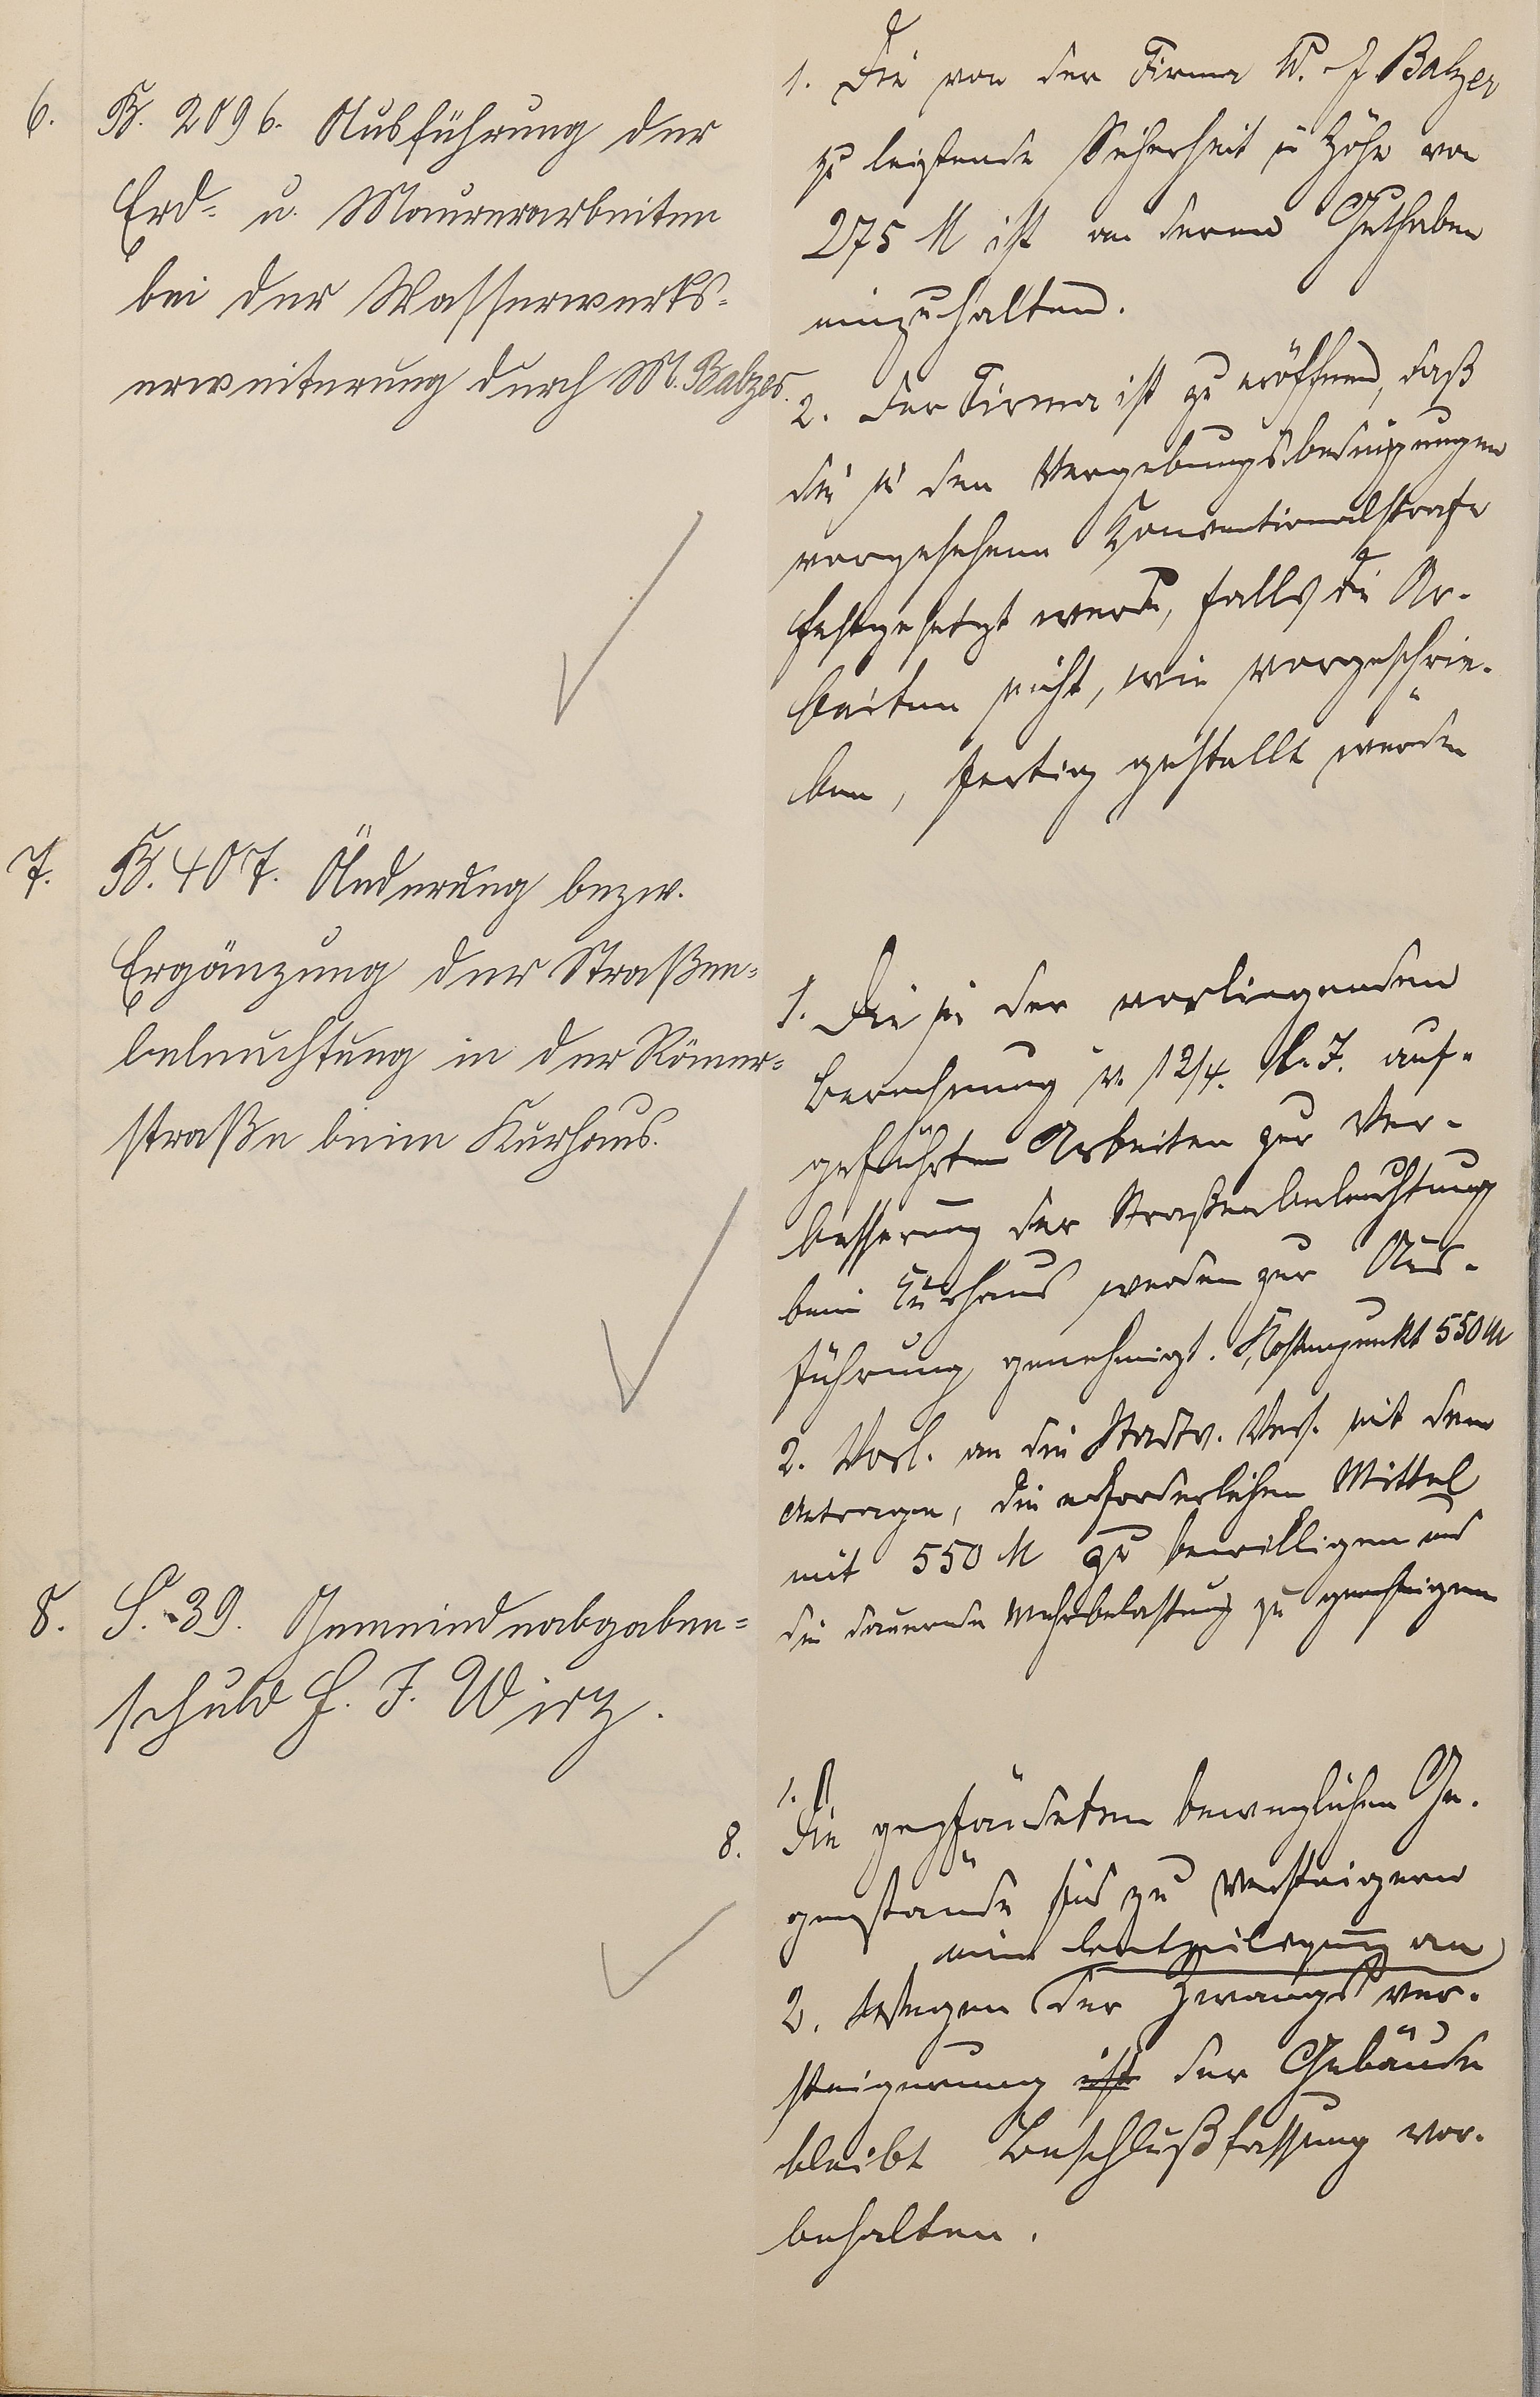 6. B. 2096. Ausführung der
Erd- u. Maurerarbeiten
bei der Wasserwerks-
erweiterung durch M. Balzer.
1. Die von der Firma W. J Balzer
zu leistende Sicherheit in Höhe von
275 M ist an deren Guthaben
einzuhalten.
2. Der Firma ist zu eröffnen, daß
die in den Vergebungsbedingungen
vorgesehene Konventionalstrafe
festgesetzt werde, falls die Ar-
beiten nicht, wie vorgeschrie-
ben, fertig gestellt würden
7. B. 407. Änderung bezw.
Ergänzung der Straßen-
beleuchtung in der Römer-
straße beim Kurhaus.
1. Die in der vorliegenden
Berechnung v. 12/4. l. J. auf-
geführten Arbeiten zur Ver-
besserung der Straßenbeleuchtung
beim Kurhaus werden zur Aus-
führung genehmigt. Kostenpunkt 550 M
2. Vorl. an die Stadtv. Vers. mit dem
Antrage, die erforderlichen Mittel
mit 550 M zu bewilligen und
die dauernde Mehrbelastung zu genehmigen
8. S. 39. Gemeindeabgaben-
schuld H. J. Wirz.
1.
8. Die gepfändeten beweglichen Ge-
genstände sind zu versteigern
eine Beteiligung an
2. Wegen der Zwangsver-
steigerung ist der Gebäude
bleibt Beschlußfassung vor-
behalten.